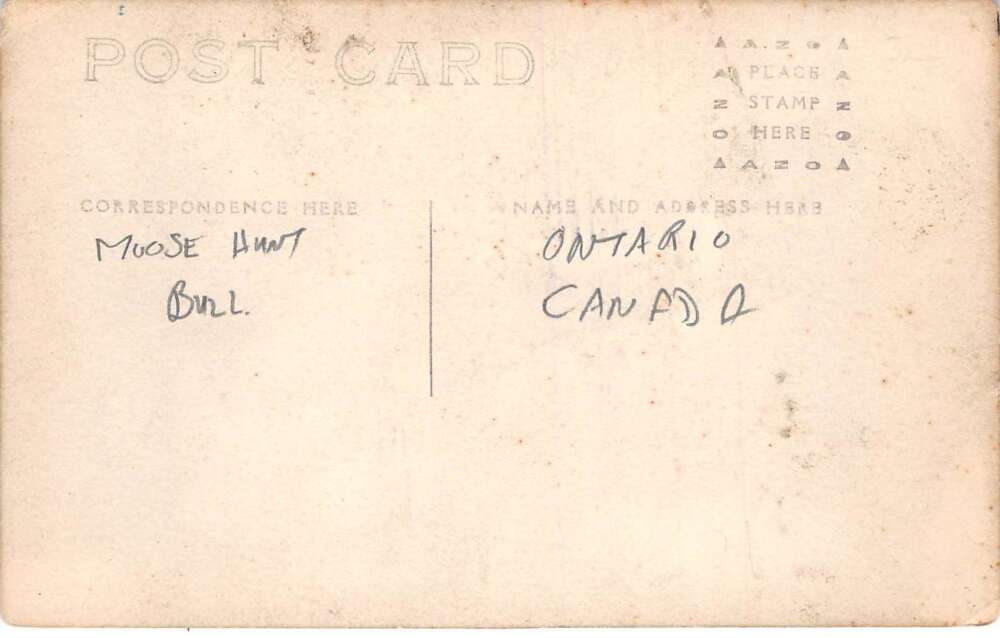 POST CARD
AZO
PLACE
STAMP
HERE
AZO
AZO
AZO
CORRESPONDENCE HERE
NAME AND ADDRESS HERE
MOOSE HUNT
BULL.
ONTARIO
CANADA